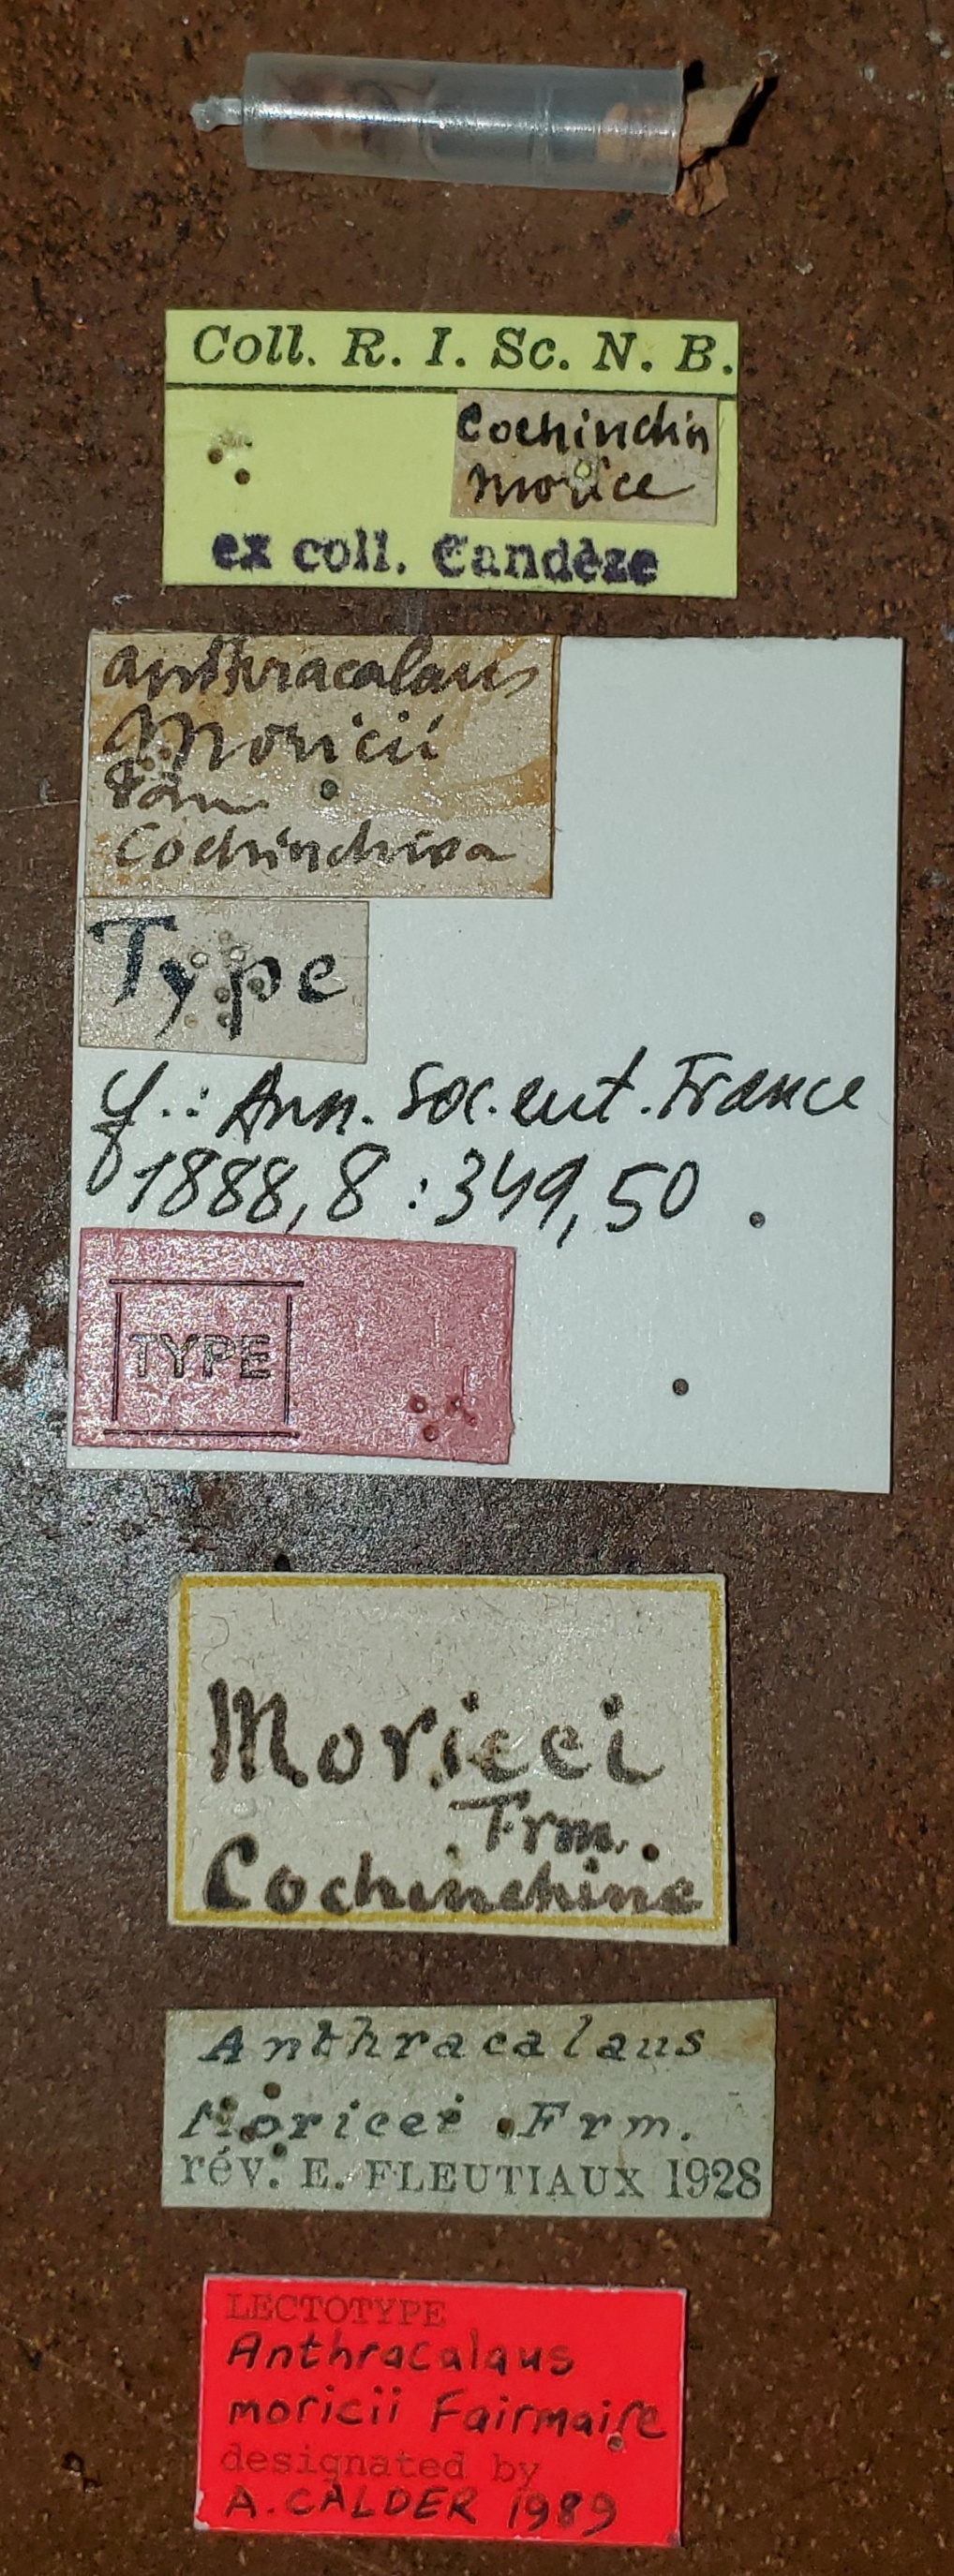 Coll. R. I. Sc. N. B.
Cochinchin
Morice
ex coll. Candèze
Anthracalaus
Moricii
Cochinchina
Type
cf.: Ann. Soc. ent. France
1888, 8 : 349, 50 .
TYPE
Moricei
Frm.
Cochinchine
Anthracalaus
Moricei Frm.
rév. E. FLEUTIAUX 1928
LECTOTYPE
Anthracalaus
moricii Fairmaire
designated by
A. CALDER 1989